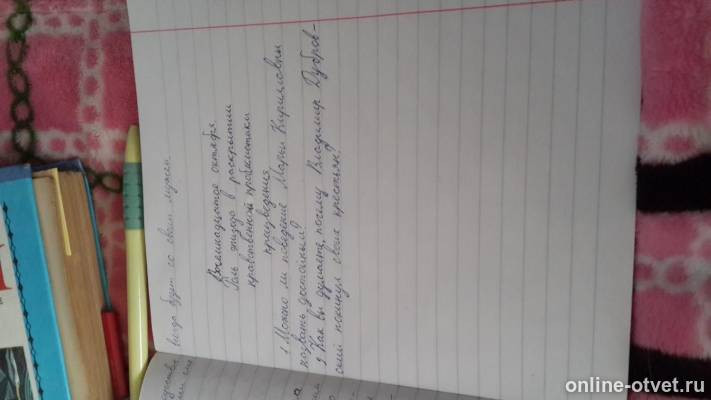 всегда будет со своим мужем.
Восемнадцатое октября.
Роль эпизода в раскрытии
нравственной проблематики
произведения.
1. Можно ли поведение Марьи Кириловны
назвать достойным?
2. Как вы думаете, почему Владимир Дубров-
ский покинул своих крестьян?
online-otvet.ru